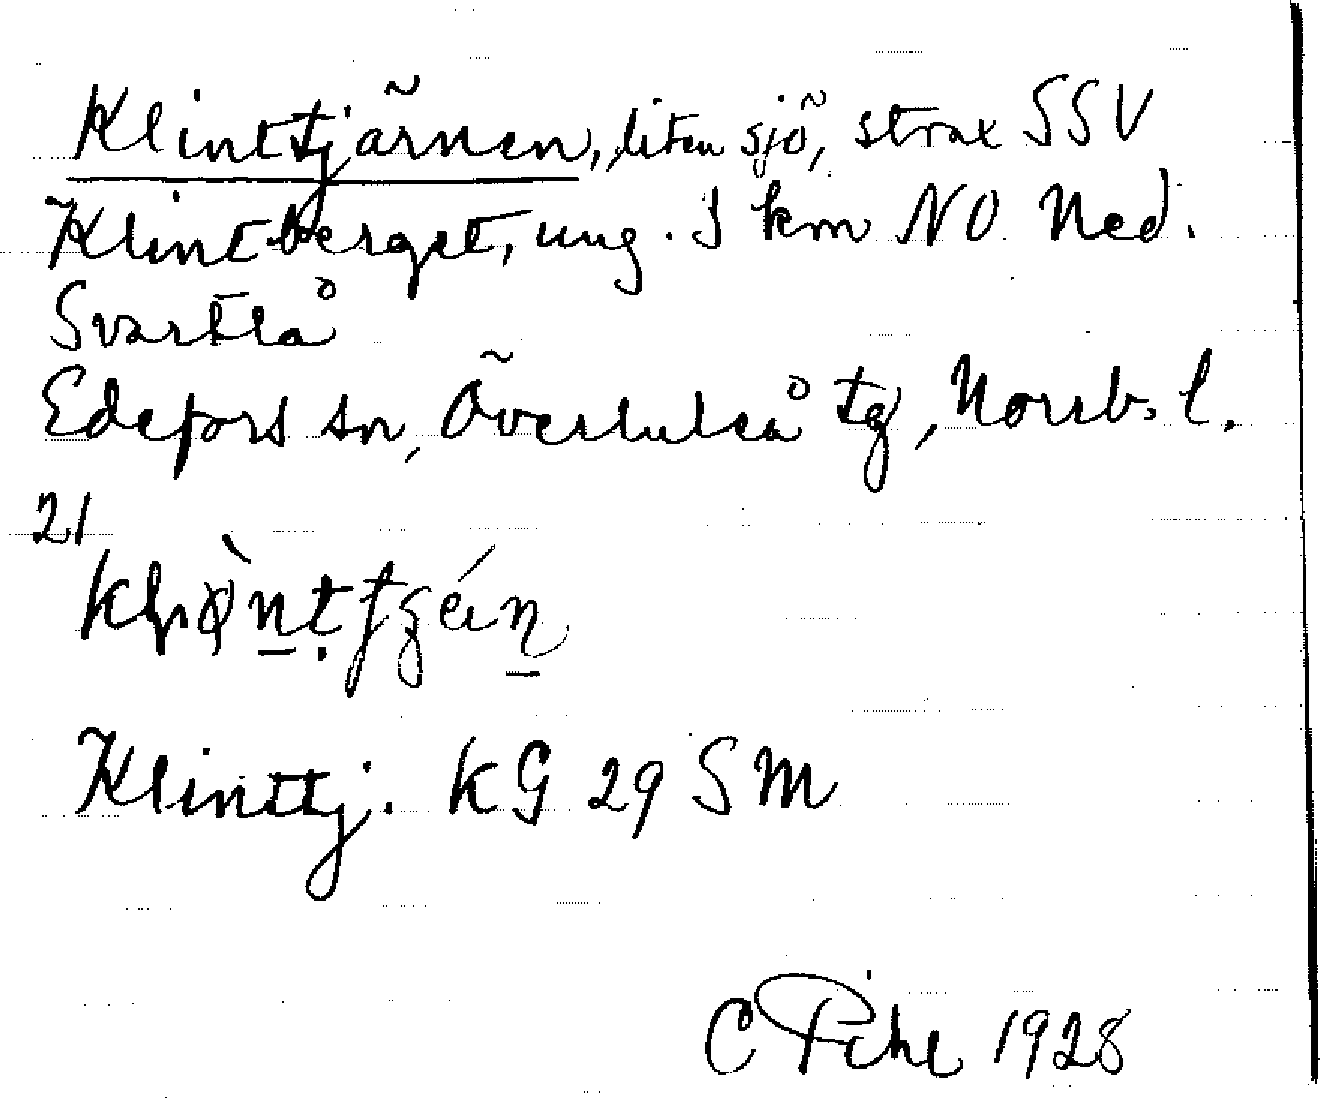 Klinttjärnen, liten sjö, strax SSV
Klintberget, ung. 1 km NO Ned.
Svartlå
Edefors sn, Överluleå tg, Norrb. l.
21
Klinttj. KG 29 SM
C Pihl 1928